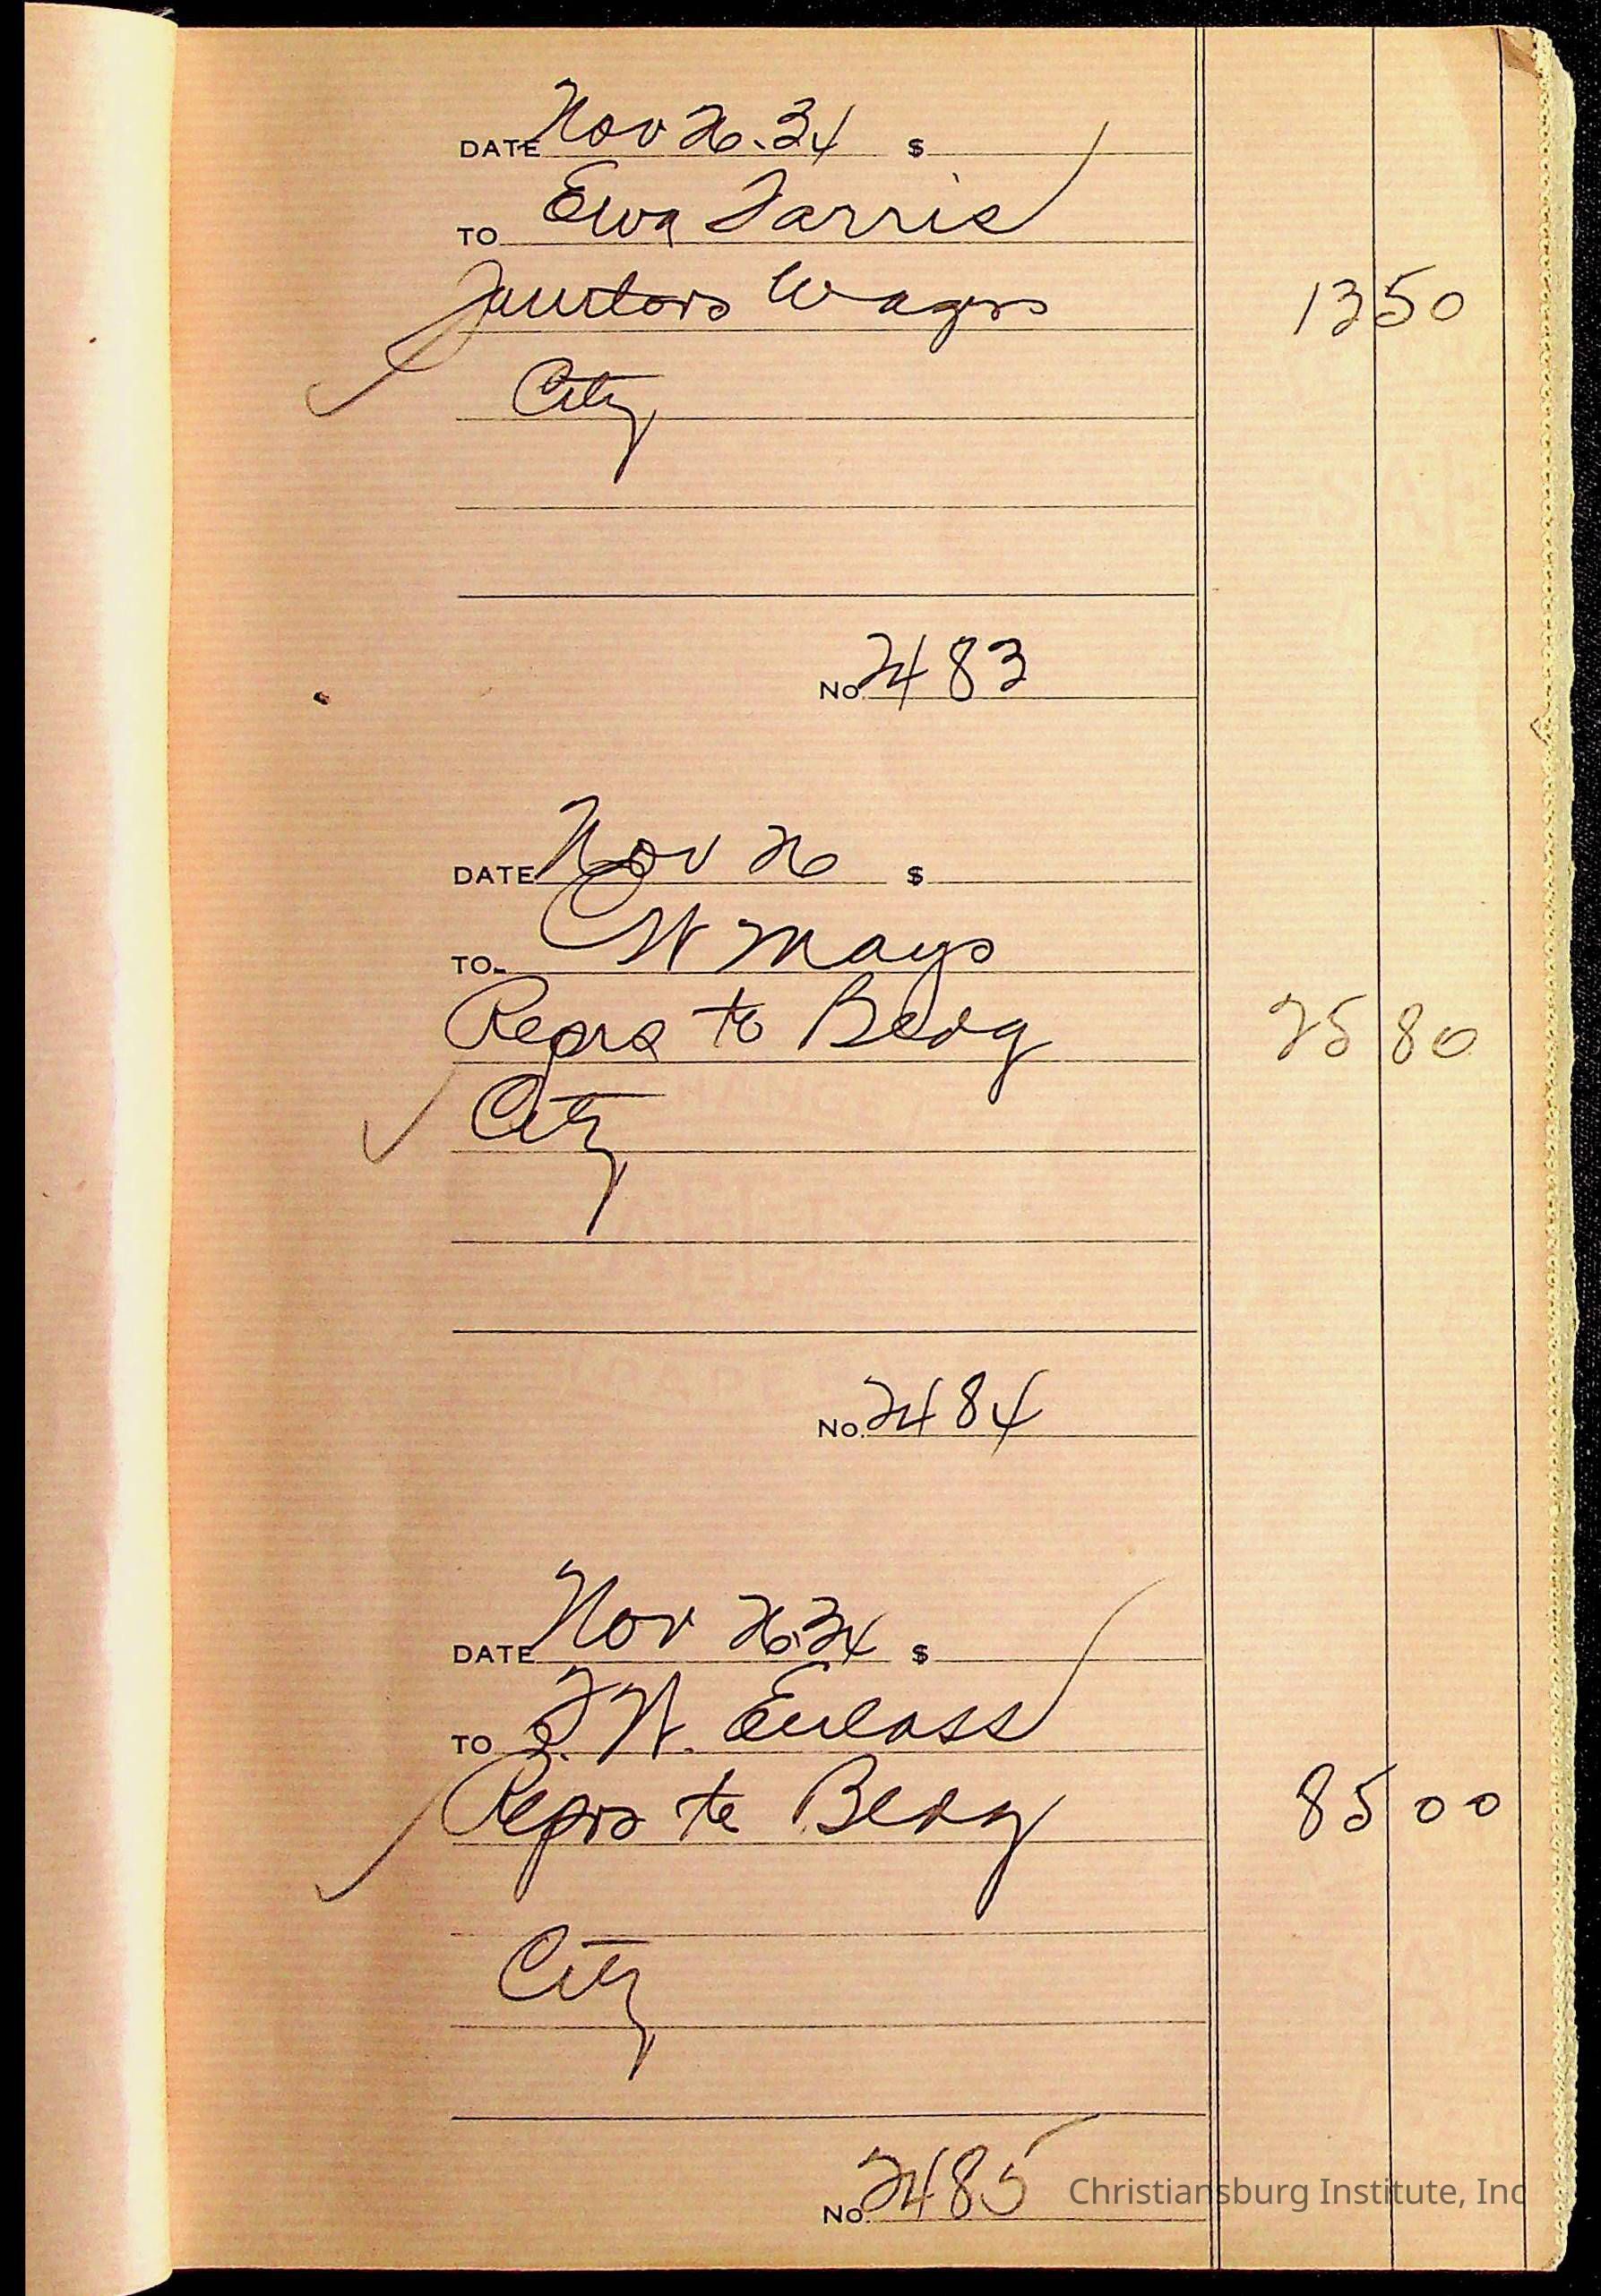 DATE Nov 26. 34 $
TO Ewa Farris
Janitors Wages 13 50
City
No. 2483
DATE Nov 26 $
TO CW Mays
Reprs to Bldg 25 80
City
No. 2484
DATE Nov 26, 34 $
TO W.
Reprs to Bldg 85 00
City
No. 2485
Christiansburg Institute, Inc